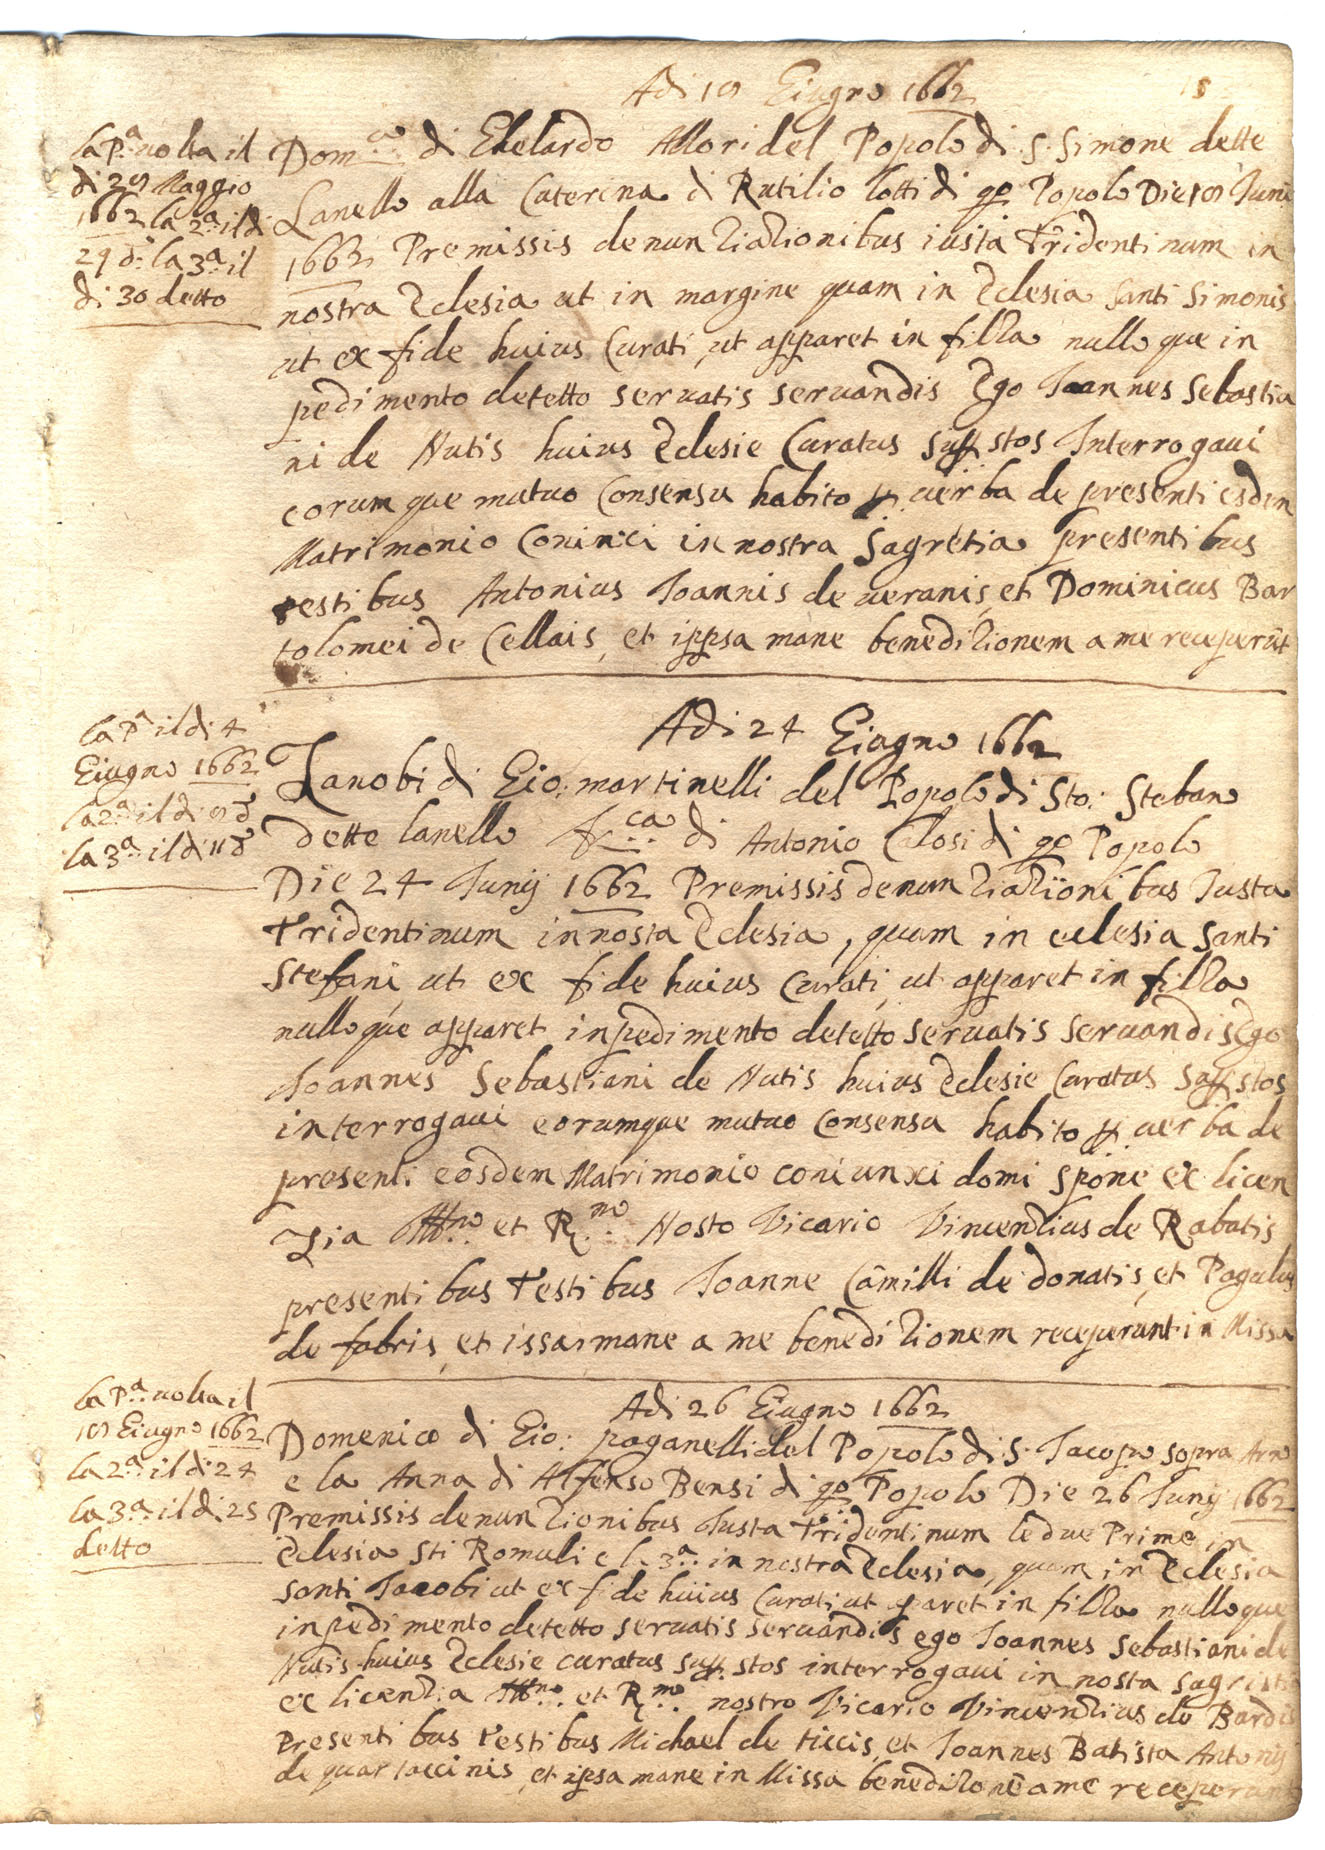 Adi 19 Giugno 1662
la P.a uolta il
di 29 Maggio
1662 la 2.a il di
29 d.o la 3.a il
di 30 detto
Dom.ca di Ebelardo Allori del Popolo di S. Simone dette
Lanello alla Caterina di Rutilio lotti di qo Popolo Die 19 Juni
1662 Premissis denuntiationibus iusta Tridentinum in
nostra Eclesia ut in margine quam in Eclesia Santi Simonis
ut ex fide huius Curati ut apparet in filza nullo que in
pedimento detetto seruatis seruandis Ego Joannes Sebastia
ni de Nutis huius Eclesie Curatus sup stos Interrogaui
eorum que mutuo Consensu habito p. uerba de presenti esdem
Matrimonio Coninici in nostra Sagretia presentibus
testibus Antonius Joannis de ueranis, et Dominicus Bar
tolomei de Cellais, et ippsa mane beneditionem a me receperūt
la P.a il di 4
Giugno 1662
la 2.a il di 9 d.o
la 3.a il di 11 d.o
Adi 24 Giugno 1662
Zanobi di Gio: martinelli del Popolo di Sto: Stebano
dette lanello Fr.ca di Antonio Calosi di qo Popolo
Die 24 Junij 1662 Premissis denuntiationibus Justa
Tridentinum in nosta Eclesia, quam in eclesia Santi
Stefani ut ex fide huius Curati, ut apparet in filza
nullo que apparet inpedimento detetto seruatis seruandis Ego
Joannes Sebastiani de Nutis huius Eclesie Curatus sup stos
interrogaui eorumque mutuo Consensu habito p uerba de
presenti eosdem Matrimonio coniunxi domi spone ex licen
Zia Ill.mo et R.mo Nosto Vicario Vincentius de Rabatis
presentibus Testibus Joanne Camilli de donatis, et Pagulus
de fabris, et issa mane a me beneditionem receperunt in Missa
la P.a uolta il
19 Giugno 1662
la 2.a il di 24
la 3.a il di 25
detto
Adi 26 Giugno 1662
Domenico di Gio: paganelli del Popolo di S. Jacopo sopra Arno
e la Anna di Alfonso Bensi di qo Popolo Die 26 Junij 1662
Premissis denuntionibus Justa Tridentinum le due Prime in
Eclesia Sti Romuli e la 3.a in nostra Eclesia, quam in Eclesia
Santi Jacobi ut ex fide huius Curati ut paret in filza nullo que
inpedimento detetto seruatis seruandis ego Joannes Sebastiani de
Nutis huius Eclesie curatus sup stos interrogaui in nosta sagristi
ex licentia Ill.mo et R.mo nostro Vicario Vincentius de Bardis
Presentibus testibus Michael de ticcis, et Joannes Batista Antonij
de quartaccinis, et ipsa mane in Missa beneditonē a me receperunt